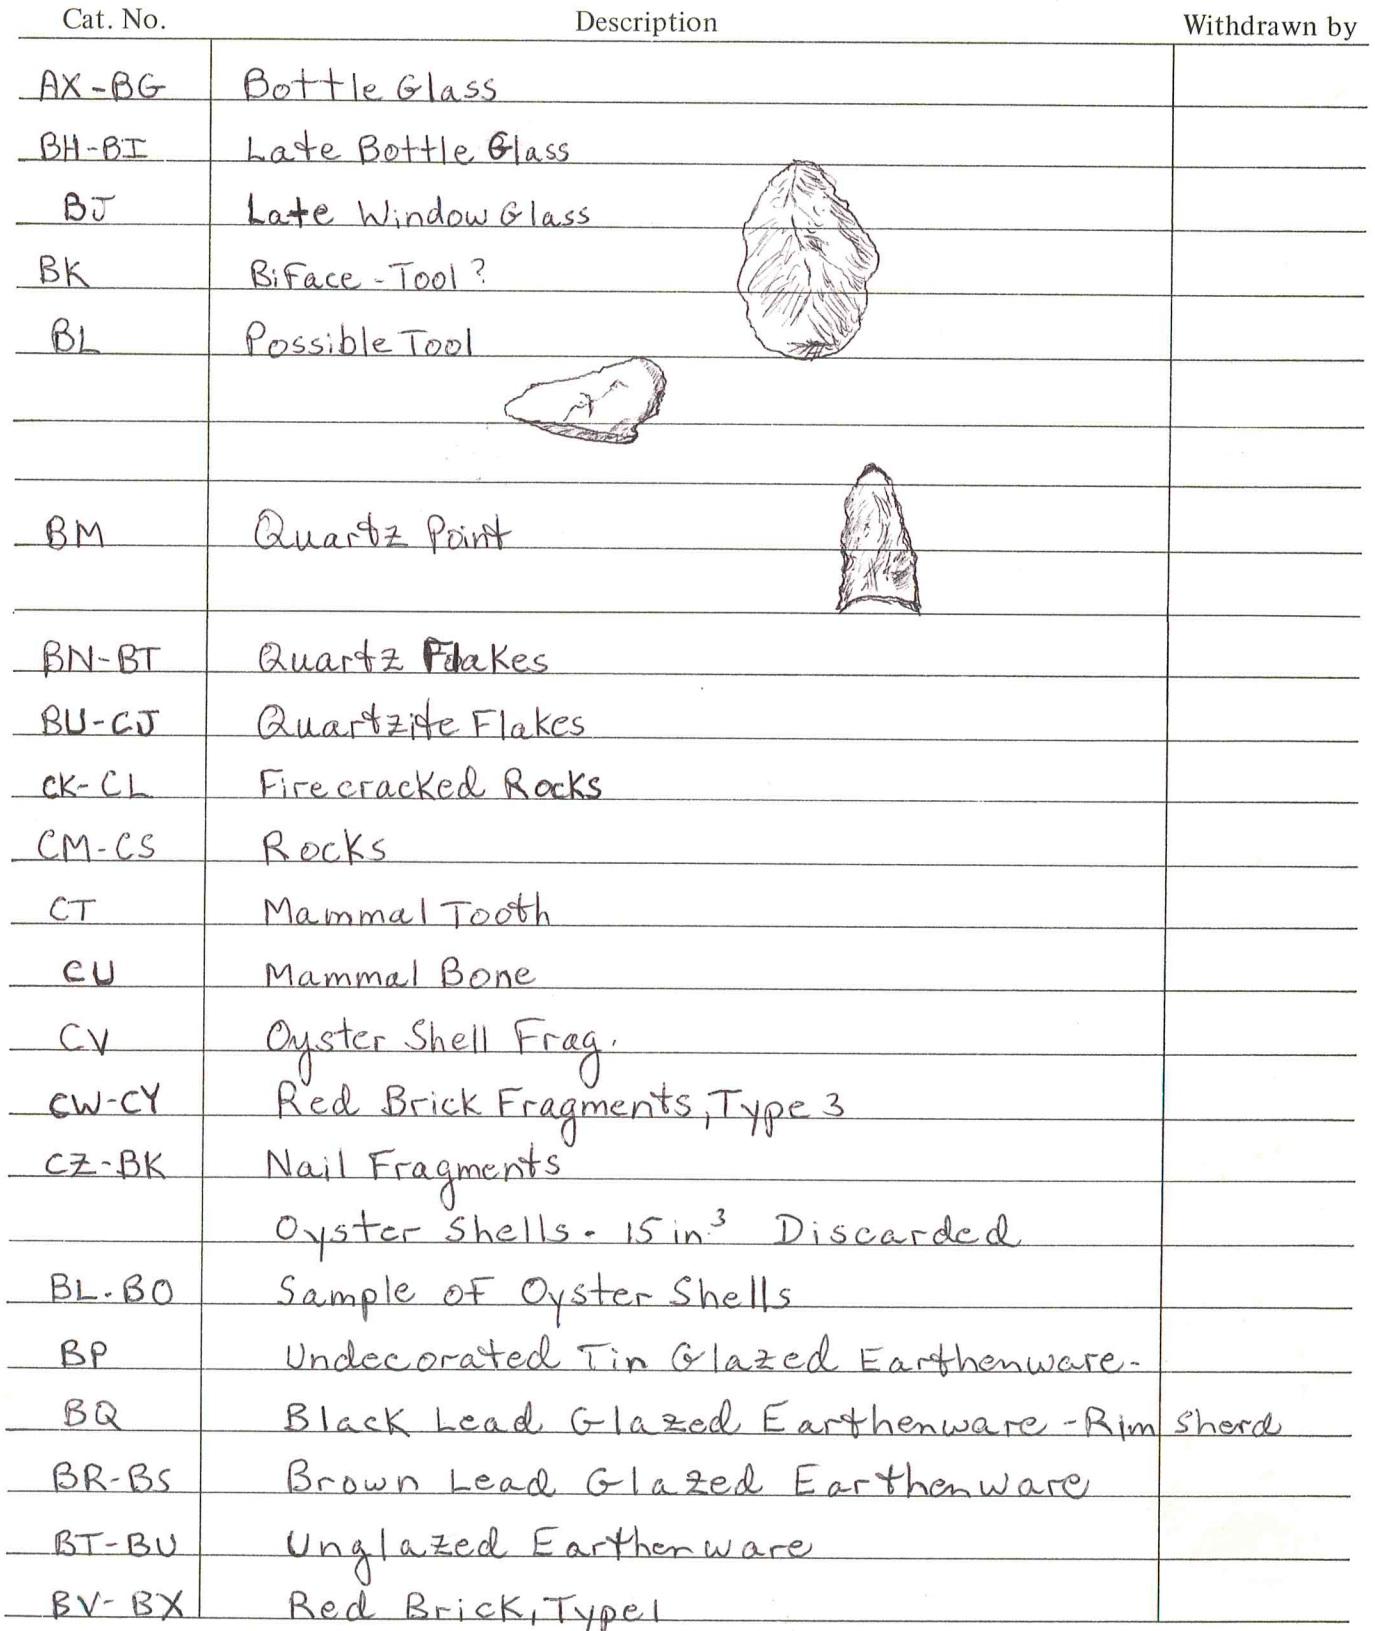 Cat. No. Description Withdrawn by
AX-BG Bottle Glass
BH-BI Late Bottle Glass
BJ Late Window Glass
BK BiFace-Tool?
BL Possible Tool
BM Quartz Point
BN-BT Quartz Flakes
BU-CJ Quartzite Flakes
CK-CL Firecracked Rocks
CM-CS Rocks
CT Mammal Tooth
CU Mammal Bone
CV Oyster Shell Frag.
CW-CY Red Brick Fragments, Type 3
CZ-BK Nail Fragments
Oyster Shells. 15 in.³ Discarded
BL.BO Sample of Oyster Shells
BP Undecorated Tin Glazed Earthenware-
BQ Black Lead Glazed Earthenware -Rim Sherd
BR-BS Brown Lead Glazed Earthenware
BT-BU Unglazed Earthenware
BV-BX Red Brick, Type 1